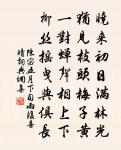 晓来初日满林光
犹见枝头梅子黄
一对蝉声相上下
柳丝摇曳与俱长
陈宓五月下旬雨后喜
晴词典网集